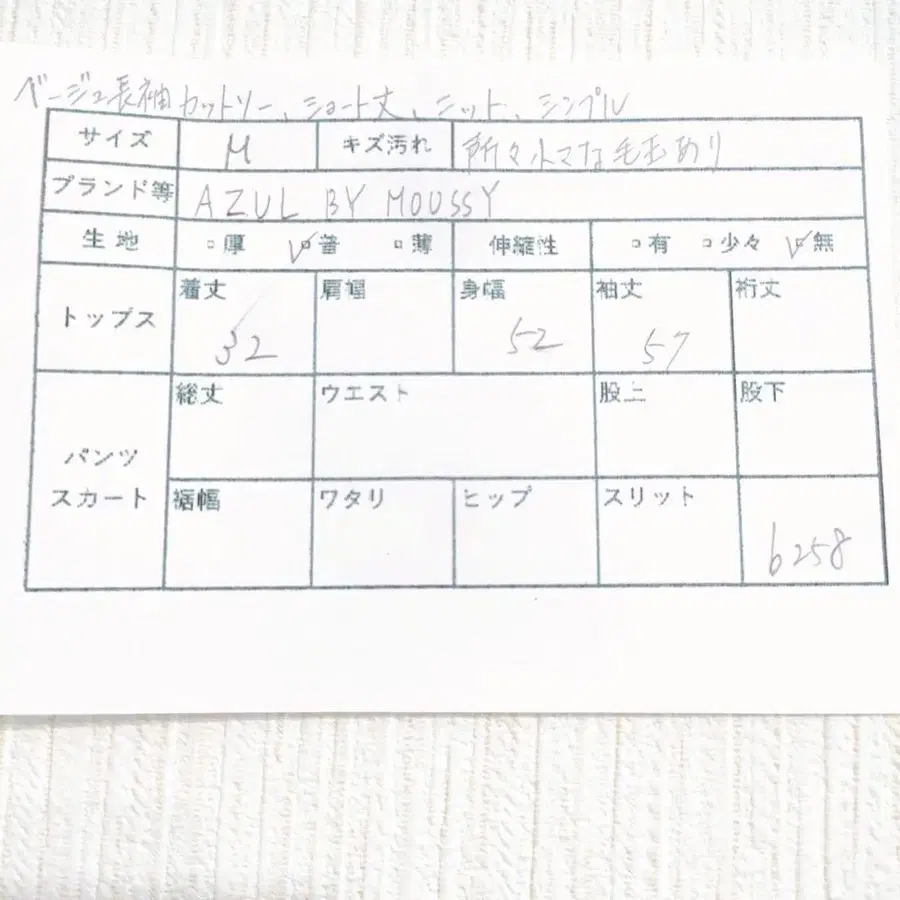 ベージュ長袖カットソー、ショート丈、ニット、シンプル
サイズ M キズ汚れ 所々小マな毛玉あり
ブランド等 AZUL BY MOUSSY
生地 □厚 ☑普 □薄 伸縮性 □有 □少々 ☑無
トップス 着丈 32 肩幅 身幅 52 袖丈 57 裄丈
パンツ スカート 総丈 ウエスト 股上 股下
裾幅 ワタリ ヒップ スリット 6258